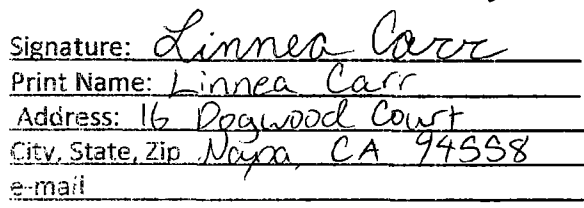 Signature: Linnea Carr
Print Name: Linnea Carr
Address: 16 Dogwood Court
City, State, Zip Napa, CA 94558
e-mail